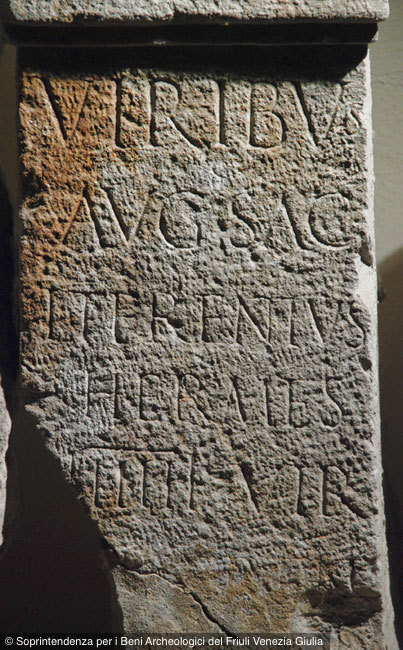 VIRIBVS
AVG SAC
L TERENTIVS
HERMES
IIIIII VIR
© Soprintendenza per i Beni Archeologici del Friuli Venezia Giulia